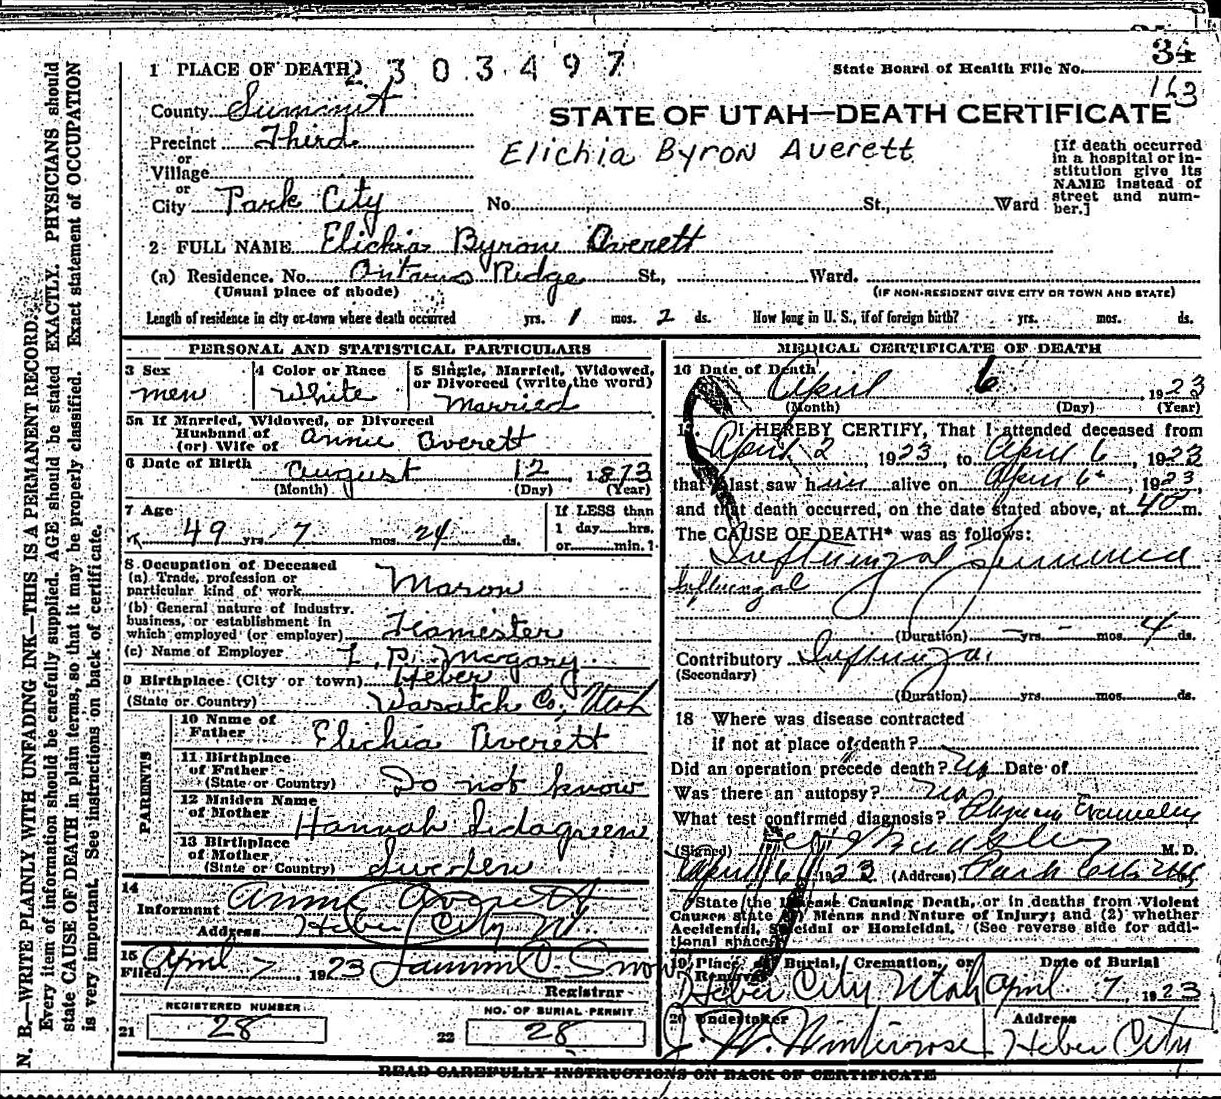 34
1 PLACE OF DEATH 2 3 0 3 4 9 7
State Board of Health File No.
163
County Summit
STATE OF UTAH—DEATH CERTIFICATE
Precinct Third
or
Village
or
City Park City No. St., Ward
Elichia Byron Averett
[If death occurred
in a hospital or in-
stitution give its
NAME instead of
street and num-
ber.]
2 FULL NAME Elichia Byron Averett
(a) Residence. No. Ontario Ridge St., Ward.
(Usual place of abode) (IF NON-RESIDENT GIVE CITY OR TOWN AND STATE)
Length of residence in city or town where death occurred yrs. 1 mos. 2 ds. How long in U. S., if of foreign birth? yrs. mos. ds.
PERSONAL AND STATISTICAL PARTICULARS
3 Sex men
4 Color or Race White
5 Single, Married, Widowed,
or Divorced (write the word)
Married
5a If Married, Widowed, or Divorced
Husband of
(or) Wife of Annie Averett
6 Date of Birth August 12, 1873
(Month) (Day) (Year)
7 Age 49 yrs. 7 mos. 24 ds.
If LESS than
1 day hrs.
or min.
8 Occupation of Deceased
(a) Trade, profession or
particular kind of work Mason
(b) General nature of Industry,
business, or establishment in
which employed (or employer) Teamester
(c) Name of Employer
9 Birthplace (City or town) Heber
(State or Country) Wasatch Co, Utah
PARENTS
10 Name of
Father Elichia Averett
11 Birthplace
of Father
(State or Country) Do not know
12 Maiden Name
of Mother Hannah
13 Birthplace
of Mother
(State or Country) Sweden
14
Informant Annie Averett
Address Heber City Ut
15
Filed April 7, 1923
Registrar
REGISTERED NUMBER
21 28
NO. OF BURIAL PERMIT
22 28
MEDICAL CERTIFICATE OF DEATH
16 Date of Death April 6, 1923
(Month) (Day) (Year)
17 I HEREBY CERTIFY, That I attended deceased from
April 2 1923, to April 6, 1923
that I last saw him alive on April 6, 1923
and that death occurred, on the date stated above, at m.
The CAUSE OF DEATH* was as follows:
Influenzal
Influenzal
(Duration) yrs. mos. 4 ds.
Contributory Influenza
(Secondary)
(Duration) yrs. mos. ds.
18 Where was disease contracted
if not at place of death?
Did an operation precede death? No Date of
Was there an autopsy? no
What test confirmed diagnosis?
(Signed) M. D.
April 6 1923 (Address) Park City Utah
*State the Disease Causing Death, or in deaths from Violent
Causes state (1) Means and Nature of Injury; and (2) whether
Accidental, Suicidal or Homicidal. (See reverse side for addi-
tional space.)
19 Place of Burial, Cremation, or Removal Date of Burial
Heber City Utah April 7, 1923
20 Undertaker Address
Heber City
READ CAREFULLY INSTRUCTIONS ON BACK OF CERTIFICATE
N. B.—WRITE PLAINLY WITH UNFADING INK—THIS IS A PERMANENT RECORD.
Every item of information should be carefully supplied. AGE should be stated EXACTLY. PHYSICIANS should
state CAUSE OF DEATH in plain terms, so that it may be properly classified. Exact statement of OCCUPATION
is very important. See instructions on back of certificate.